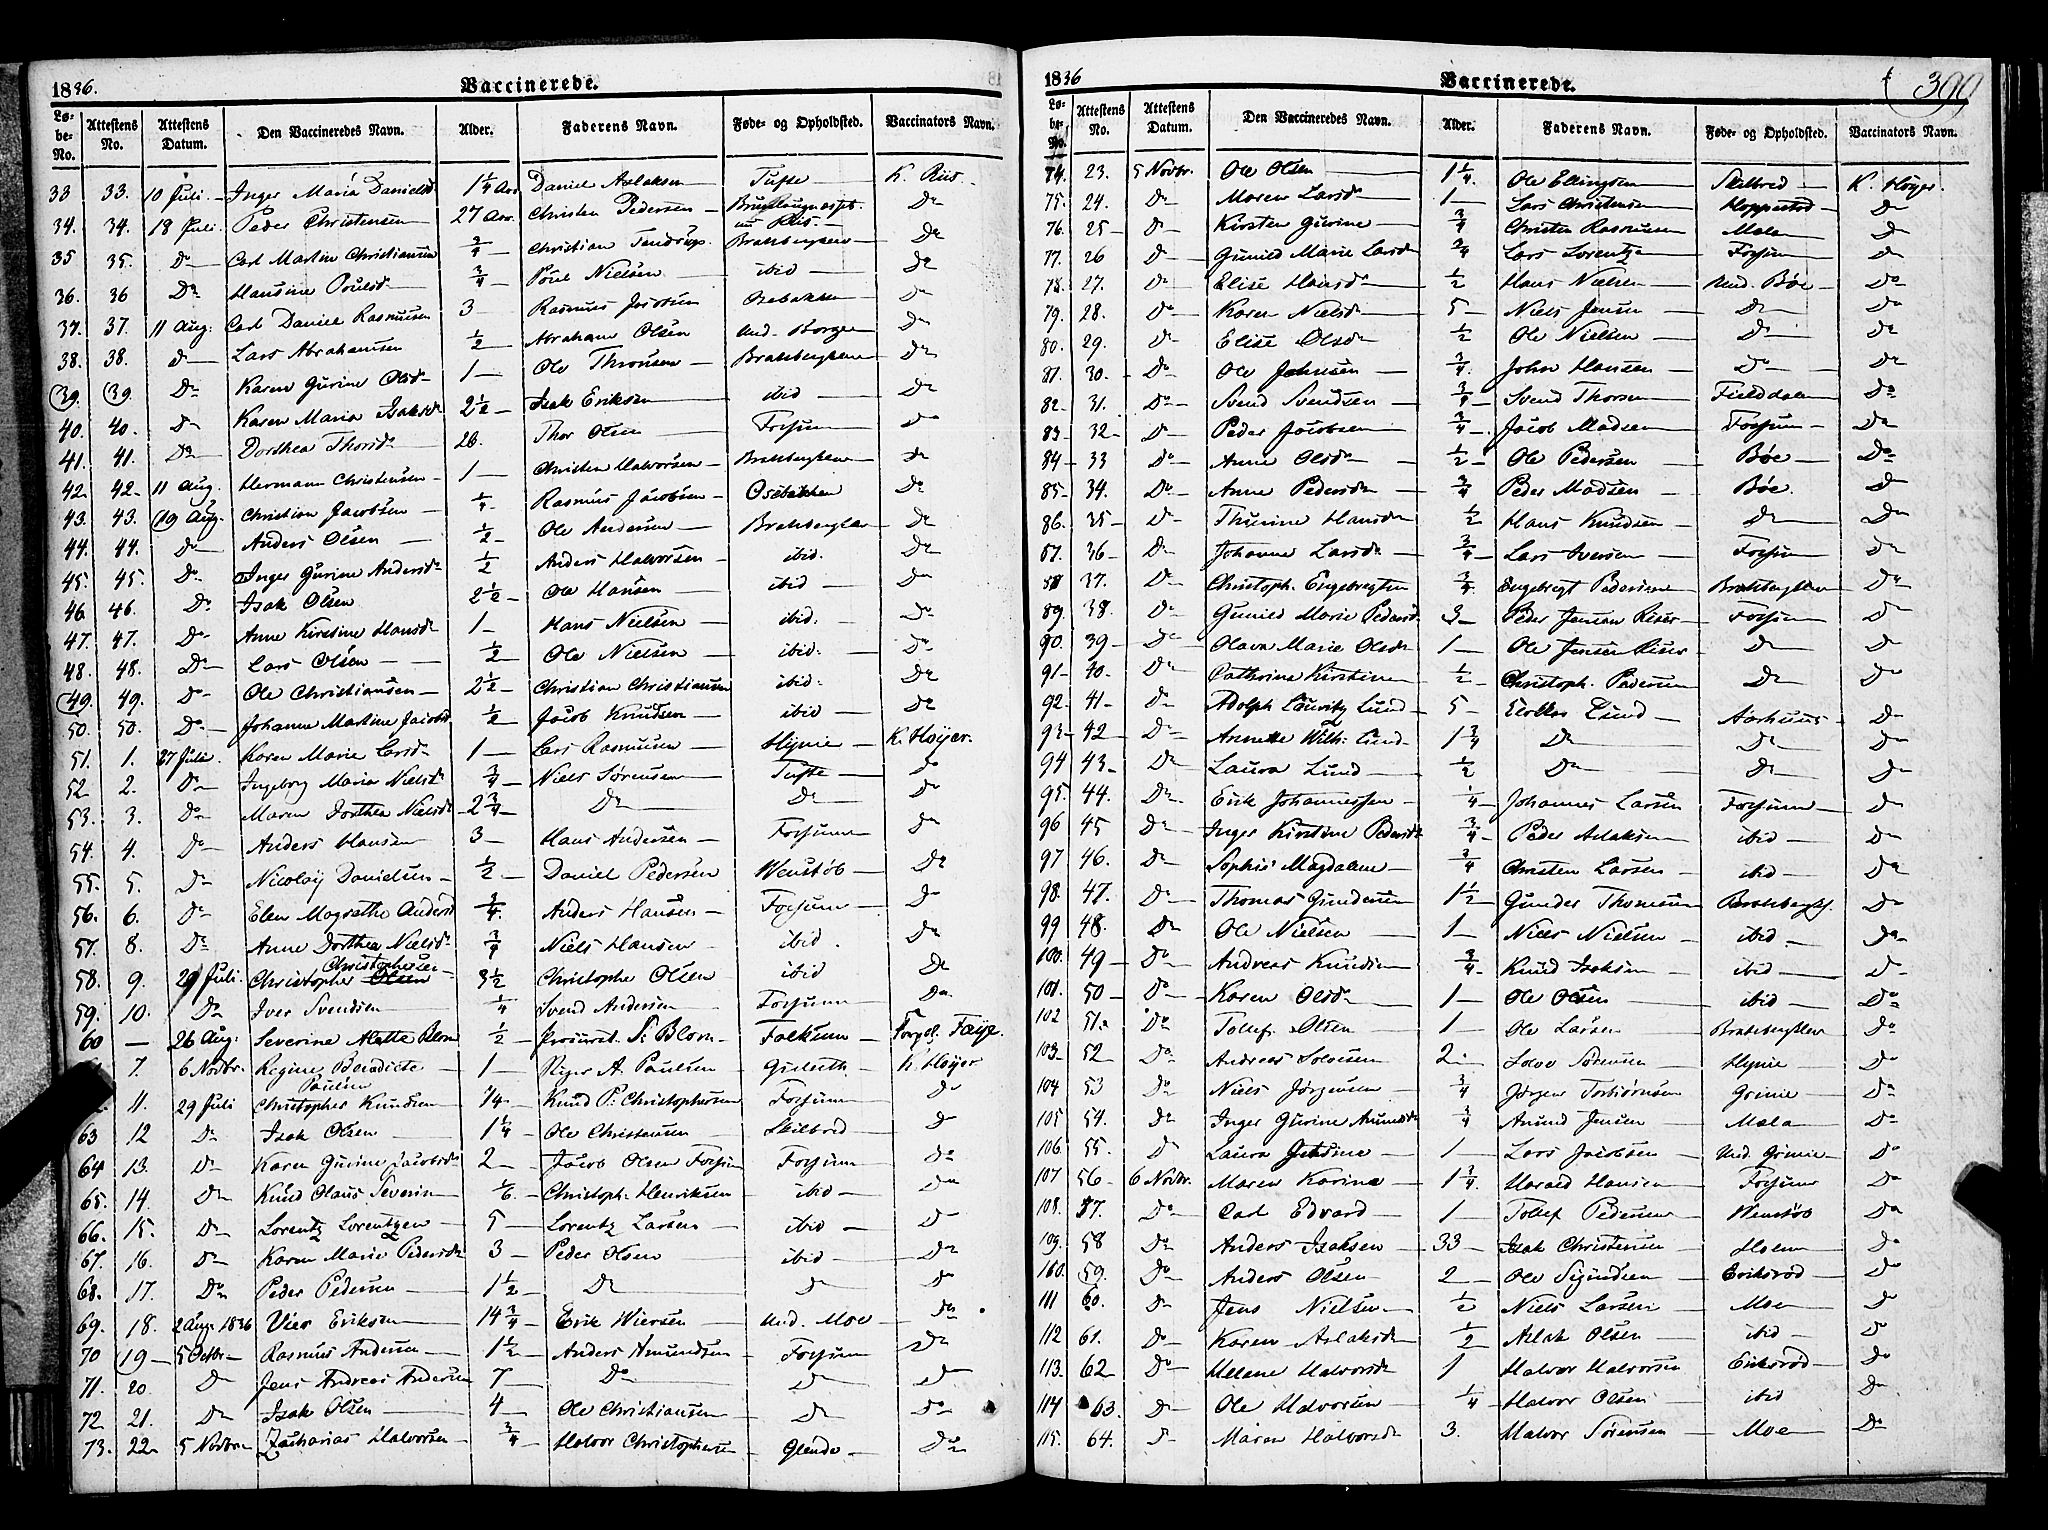 1836. Vaccinerede.
Løbe-No. Attestens No. Attestens Datum. Den Vaccineredes Navn. Alder. Faderens Navn. Føde- og Opholdsted. Vaccinators Navn.
33 33. 10 Juli. Inger Maria Danielsd. 1 1/4 Aar Daniel Aslaksen Tufte K. Riis
34. 34. 18 Juli Peder Christensen 27 Aar. Christen Pedersen Do
35 35. Do Carl Martin Christiansen 3/4 Christian Bratsbergkleven Do
36. 36 Do Hansine Poulsd. 3/4 Poul Nielsen ibid Do
37. 37. 11 Aug. Carl Daniel Rasmusen 3 Rasmus Jacobsen Osebakken Do
38. 38. Do Lars Abrahamsen 1/2 Abraham Olsen And. Borgen Do
39. 39. Do Karen Gurine Olsd. 1 Ole Bratsbergkleven Do
40. 40. Do Karen Maria Isaksd. 2 1/2 Isak Eriksen ibid Do
41. 41. Do Dorthea Thorsd. 26. Thor Olsen Forsum Do
42 42 11 Aug. Hermann Christensen 1 Christen Halvorsen Bratsbergkleven Do
43. 43. 19 Aug. Christian Jacobsen 1/4 Rasmus Jacobsen Osebakken Do
44. 44. Do Anders Olsen 1/2 Ole Andersen Bratsbergklev Do
45. 45. Do Inger Gurine Andersd. 1/2 Anders Halvorsen ibid. Do
46 46. Do Isak Olsen 2 1/2 Ole Hansen ibid Do
47. 47. Do Anne Kirstine Hansd. 1 Hans Nielsen ibid. Do
48. 48. Do Lars Olsen 1/2 Ole Nielsen ibid. Do
49. 49. Do Ole Christiansen 2 1/2 Christian Christiansen ibid. Do
50. 50. Do Johanne Martine Jacobsd. 1/2 Jacob Knudsen ibid Do
51. 1. 27 Juli. Karen Marie Larsd. 1 Lars Rasmusen Hynie K. Høyer.
52 2. Do Ingeborg Maria Nielsd. 3/4 Niels Sørensen Tufte Do
53. 3. Do Maren Dorthea Nielsd. 2 3/4 Do Do Do
54. 4. Do Anders Hansen 3 Hans Andersen Forsum Do
55. 5. Do Nicolay Danielsen 1/2 Daniel Pedersen Wenstøb Do
56. 6. Do Elen Magrethe Andersd. 3/4 Anders Hansen Forsum Do
57. 8. Do Anne Dorthea Nielsd. 3/4 Niels Hansen ibid. Do
58. 9. 29 Juli. Christopher Christophersen 3 1/2 Christopher Olsen ibid Do
59. 10. Do Iver Svendsen 1/4 Svend Andersen Forsum Do
60 — 26 Aug. Severine Mette Blom 1/2 Procurat. S. Blom Falkum Faye.
7. 6 Novbr. Regine Benedicte Paulsen 1 A. Paulsen K. Høyer
11. 29 Juli Christopher Knudsen 1/4 Knud P. Christophersen Forsum Do
63 12 Do Isak Olsen 1 1/4 Ole Christensen Skilbred Do
64 13. Do Karen Gurine Jacobsd. 2 Jacob Olsen Forsum Forsum Do
65. 14. Do Knud Olaus Severin 1/6. Christoph. Henriksen ibid Do
66. 15. Do Lorentz Lorentzen 5 Lorentz Larsen ibid Do
67. 16. Do Karen Marie Pedersd. 3 Peder Olsen ibid Do
68. 17. Do Peder Pedersen 1 1/2 Do Do Do
69. 18. 2 Aug. 1836 Vier Eriksen 14 3/4 Erik Wiersen And. Moe Do
70 19 5 Octbr. Rasmus Andersen 1 1/2 Anders Amundsen Forsum Do
71. 20. Do Jens Andreas Andersen 7 Do Do Do
72 21. Do Isak Olsen 4 Ole Christiansen Do Do
73. 22 5 Novbr. Zacharias Halvorsen 3/4 Halvor Christophersen Glende Do
1836 Vaccinerede. 399
Løbe-No. Attestens No. Attestens Datum. Den Vaccineredes Navn. Alder. Faderens Navn. Føde- og Opholdsted. Vaccinators Navn.
74. 23. 5 Novbr. Ole Olsen 1 1/4. Ole Ellingsen Skilbred K. Høyer.
75. 24. Do Maren Larsd. 1 Lars Christensen Kloppestad Do
76. 25 Do Kirsten Gurine 3/4 Christen Rasmusen Mæla Do
77. 26 Do Gunild Marie Larsd. 3/4 Lars Lorentzen Forsum Do
78. 27. Do Elise Hansd. 1/2 Hans Nielsen And. Bøe Do
79. 28. Do Karen Nielsd. 5 Niels Jensen Do Do
80. 29. Do Elise Olsd. 1/2 Ole Nielsen Do Do
81. 30. Do Ole Johnsen 3/4. John Hansen Do Do
82 31. Do Svend Svendsen 3/4 Svend Thorsen Fielddalen Do
83 32 Do Peder Jacobsen 3/4 Jacob Madsen Forsum Do
84 33 Do Anne Olsd. 1/2 Ole Pedersen Bøe Do
85 34. Do Anne Pedersd. 3/4 Peder Madsen Bøe. Do
86. 35 Do Thurine Hansd. 1/2 Hans Knudsen Do Do
87. 36 Do Johanne Larsd. 3/4 Lars Iversen Forsum Do
37. Do Christoph. Engebregtsen 3/4. Engebregt Pedersen Bratsbergkleven Do
89. 38. Do Gunild Marie Pedersd. 3 Peder Jensen Riser Forsum Do
90. 39 Do Olava Marie Olsd. 1 Ole Jensen Riser Do Do
91 40. Do Cathrine Kirstine 1/2 Christoph. Pedersen Do Do
92 41 Do Adolph Lauritz Lund 5 Lund Aarhuus Do
93 42 Do Annette Wilh. Lund 1 3/4 Do Do Do
94 43 Do Laura Lund 1/2 Do Do Do
95. 44. Do Erik Johannessen 1/4 Johannes Larsen Forsum Do
96 45 Do Inger Kirstine Pedersd. 3/4 Peder Aslaksen ibid Do
97 46. Do Sophie Magdalene 3/4 Christen Larsen ibid Do
98. 47. Do Thomas Gundersen 1 1/2 Gunder Thomesen Bratsbergkl. Do
99 48. Do Ole Nielsen 1 Niels Nielsen ibid Do
100. 49 Do Andreas Knudsen 3/4 Knud Isaksen ibid Do
101. 50 Do Karen Olsd. 1 Ole Olsen ibid Do
102 51. Do Tollef Olsen 1 Ole Larsen Bratsbergkleven Do
103 52 Do Andreas 2. Sørensen Hynie Do
104 53 Do Niels Jørgensen 3/4 Jørgen Torbiørnsen Grinie Do
105 54. Do Inger Gurine Amundsd. 3/4 Amund Jensen Mæla Do
106. 55. Do Laura 1 Lars Jacobsen And. Grinie Do
107 56 6 Novbr. Maren Karine 1 3/4. Harald Hansen Forsum Do
108. 57. Do Carl Edvard 1 Tollef Pedersen Wenstøb Do
109. 58 Do Anders Isaksen 33 Isak Christensen Holm Do
160. 59. Do Anders Olsen 2 Ole Eriksrød Do
111 60. Do Jens Nielsen 1/2 Niels Larsen Moe Do
112 61. Do Karen Aslaksd. 1/2 Aslak Olsen ibid Do
113. 62 Do Helene Halvorsd. 1 Halvor Halvorsen Eriksrød Do
114 63. Do Ole Halvorsen 1/4 Halvor Olsen ibid Do
115. 64. Do Maren Halvorsd. 3. Halvor Sørensen Moe Do